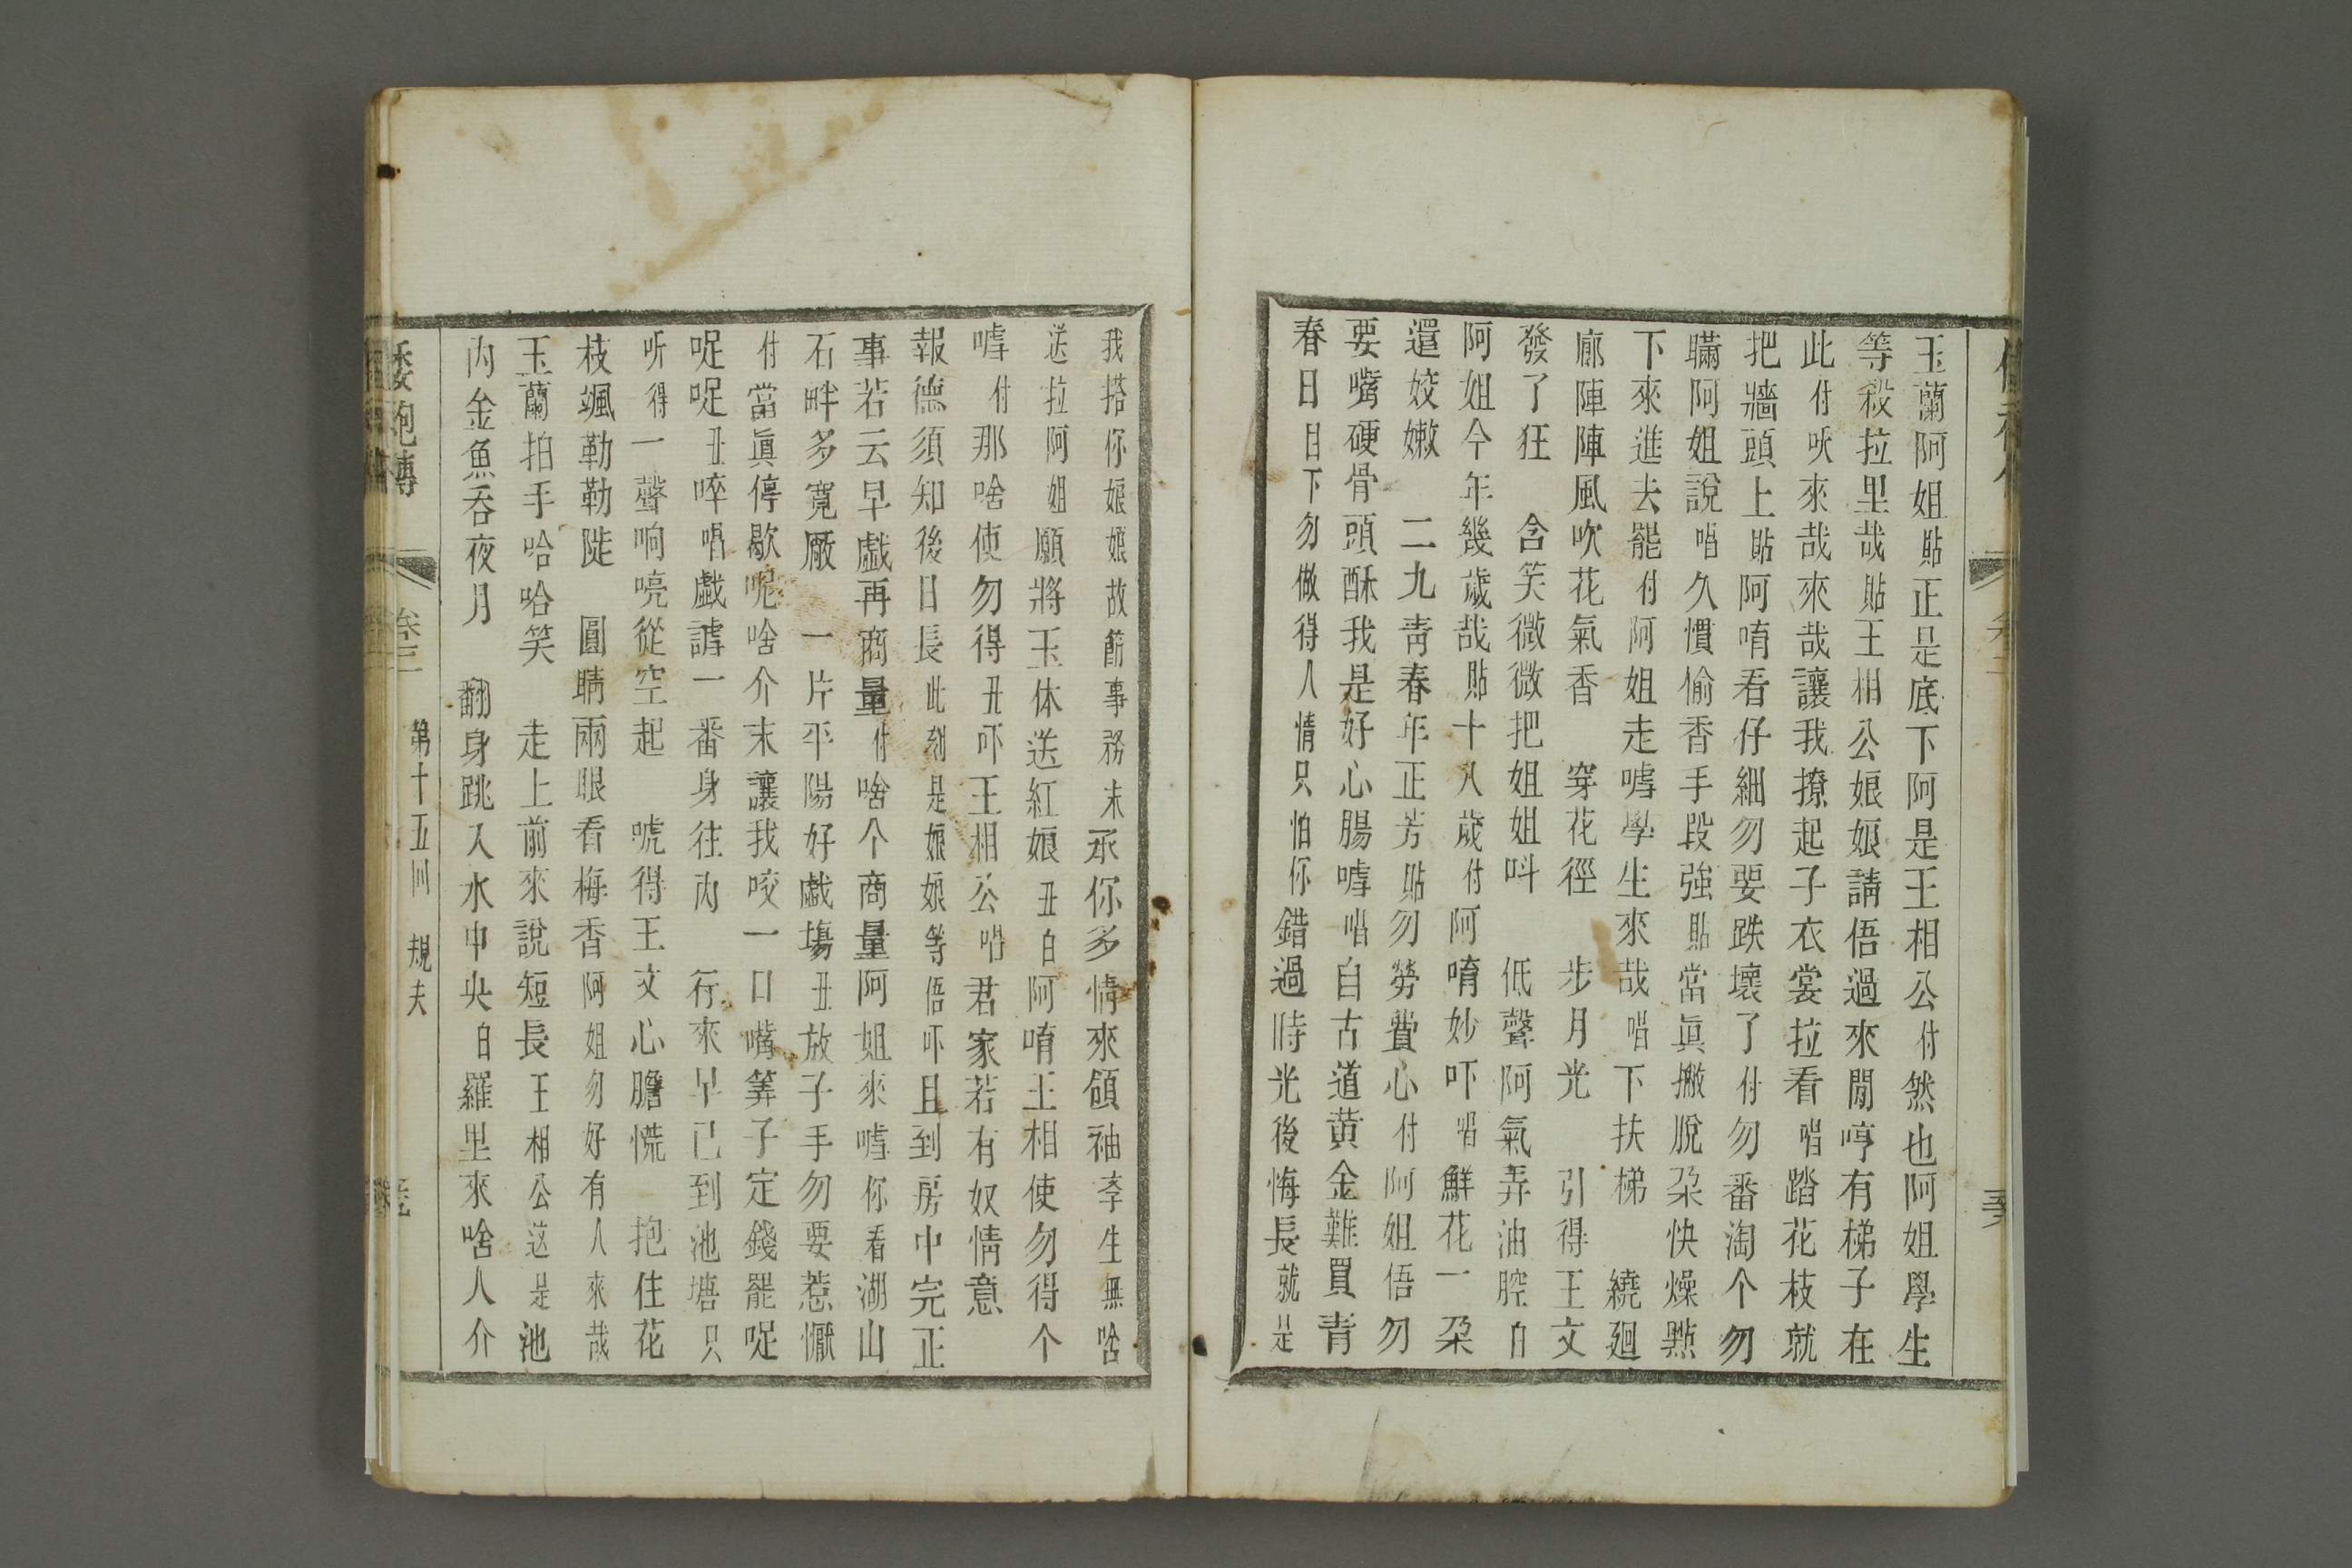 玉蘭阿姐貼正是底下阿是王相公付然也阿姐學生
等殺拉里哉貼王相公娘娘請俉過來閒哼有梯子在
此付吙來哉來哉讓我撩起子衣裳拉看唱踏花枝就
把牆頭上貼阿唷看仔細勿要跌壞了付勿番淘个勿
瞞阿姐說唱久慣偷香手段強貼當眞撇脫朶快燥㸃
下來進去罷付阿姐走嘑學生來哉唱下扶梯 繞廻
廊陣陣風吹花氣香 穿花徑 步月光 引得王文
發了狂 含笑微微把姐姐呌 低聲阿氣弄油腔白
阿姐今年幾歲哉貼十八歲付阿唷妙吓唱鮮花一朶
還姣嫩 二九靑春年正芳貼勿勞費心付阿姐俉勿
要嘴硬骨頭酥我是好心腸嘑唱自古道黄金難買青
春日日下勿做得人情只怕你錯過時光後悔長就是
我搭你娘娘故節事務末承你多情來領袖李生無啥
送拉阿姐願將玉休送紅娘丑白阿唷王相使勿得个
嘑付那啥使勿得丑吓王相公唱君家若有奴情意
報德須知後日長此刻是娘娘等俉吓且到房中完正
事若云早戲再商量付啥个商量阿姐來嘑你看湖山
石畔多寬厰 一片平陽好戲塲丑放子手勿要惹懨
付當眞停歇呢啥介末讓我咬一口嘴筭子定錢罷哫
哫哫丑啐唱戲謔一番身往內 行來早已到池塘只
听得一聲响喨從空起 唬得王文心膽慌 抱住花
枝颯勒勒陡 圓睛兩眼看梅香阿姐勿好有人來哉
玉蘭拍手哈哈笑 走上前來說短長王相公这是池
內金魚吞夜月 翻身跳入水中央白羅里來啥人介
倭袍傳 卷三 第十五回 規夫